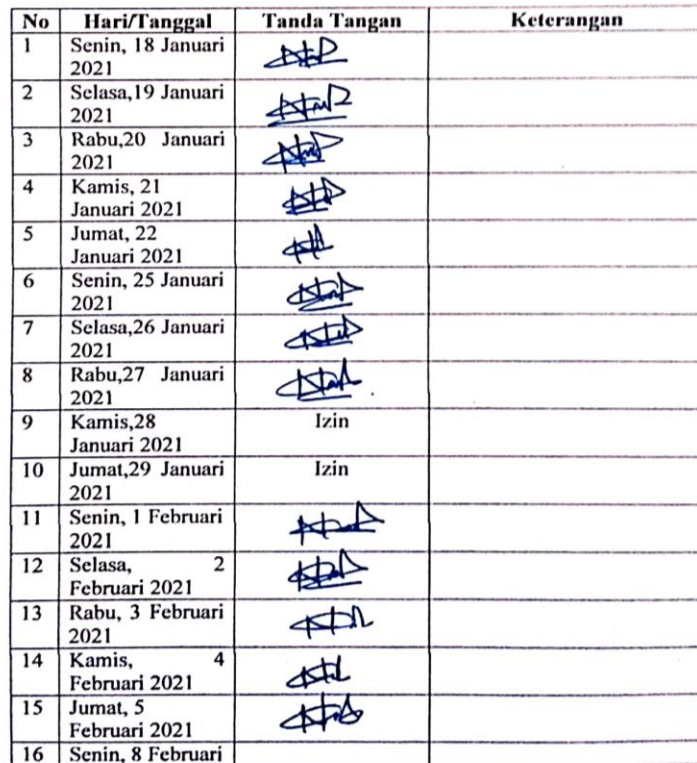 No Hari/Tanggal Tanda Tangan Keterangan
1 Senin, 18 Januari
2021
2 Selasa,19 Januari
2021
3 Rabu,20 Januari
2021
4 Kamis, 21
Januari 2021
5 Jumat, 22
Januari 2021
6 Senin, 25 Januari
2021
7 Selasa,26 Januari
2021
8 Rabu,27 Januari
2021
9 Kamis,28 Izin
Januari 2021
10 Jumat,29 Januari Izin
2021
11 Senin, 1 Februari
2021
12 Selasa, 2
Februari 2021
13 Rabu, 3 Februari
2021
14 Kamis, 4
Februari 2021
15 Jumat, 5
Februari 2021
16 Senin, 8 Februari